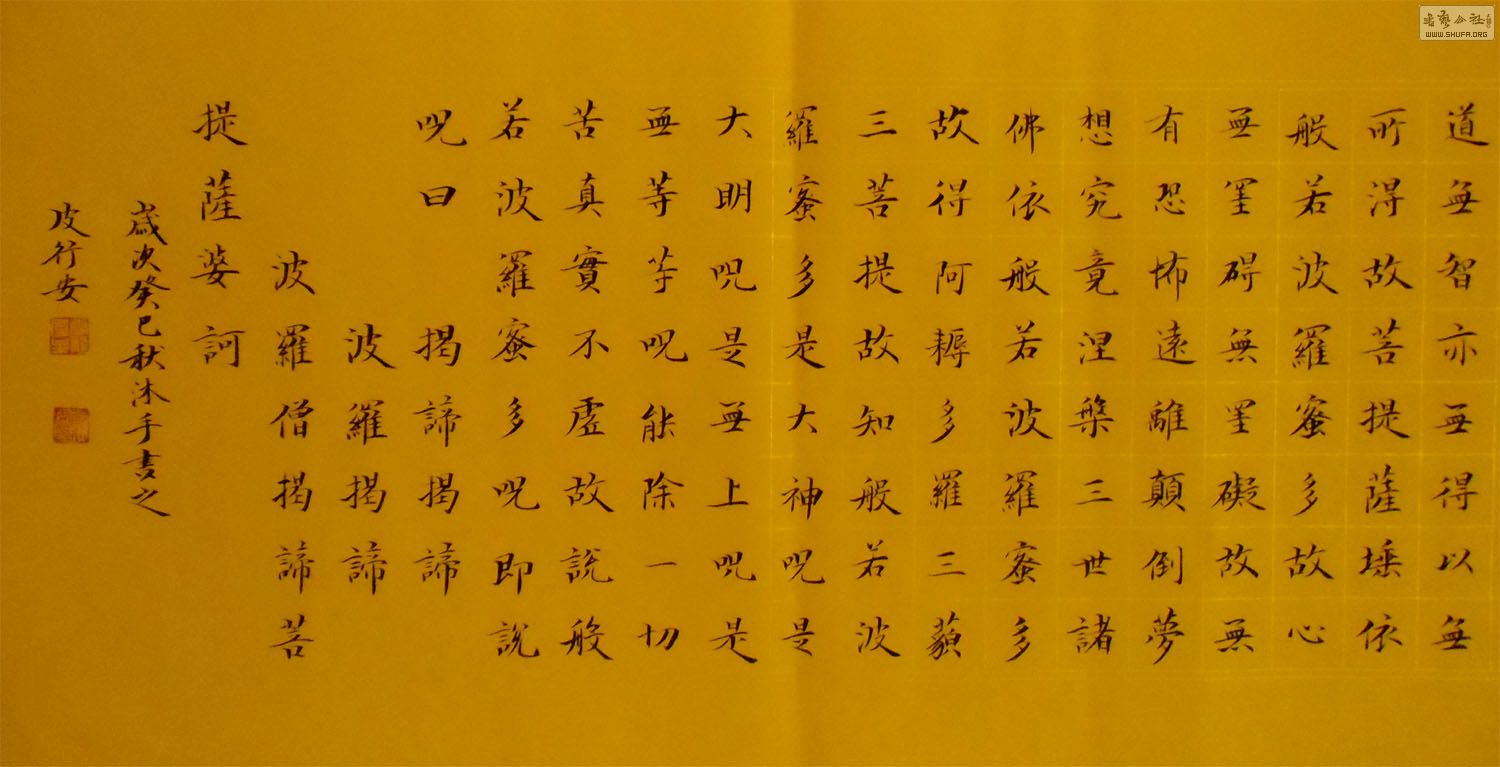 道無智亦無得以無
所得故菩提薩埵依
般若波羅蜜多故心
無罣碍無罣礙故無
有恐怖遠離顛倒夢
想究竟涅槃三世諸
佛依般若波羅蜜多
故得阿耨多羅三藐
三菩提故知般若波
羅蜜多是大神咒是
大明咒是無上咒是
無等等咒能除一切
苦真實不虛故說般
若波羅蜜多咒即說
咒曰 揭諦揭諦
波羅揭諦
波羅僧揭諦菩
提薩婆訶
歲次癸巳秋沐手書之
皮行安
書藝公社
WWW.SHUFA.ORG